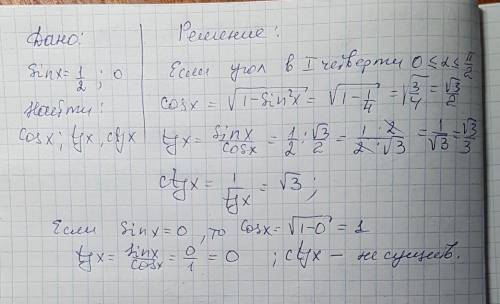 Дано:
sinx = 1/2 ; 0
Найти:
cosx ; tgx , ctgx
Решение:
Если угол в I четверти 0 ≤ α ≤ π/2
cosx = √(1-sin²x) = √(1-1/4) = √(3/4) = √3/2
tgx = sinx/cosx = 1/2 : √3/2 = 1·2/2·√3 = 1/√3 = √3/3
ctgx = 1/tgx = √3 ;
Если sinx = 0 , то cosx = √(1-0) = 1
tgx = sinx/cosx = 0/1 = 0 ; ctgx – не сущев.